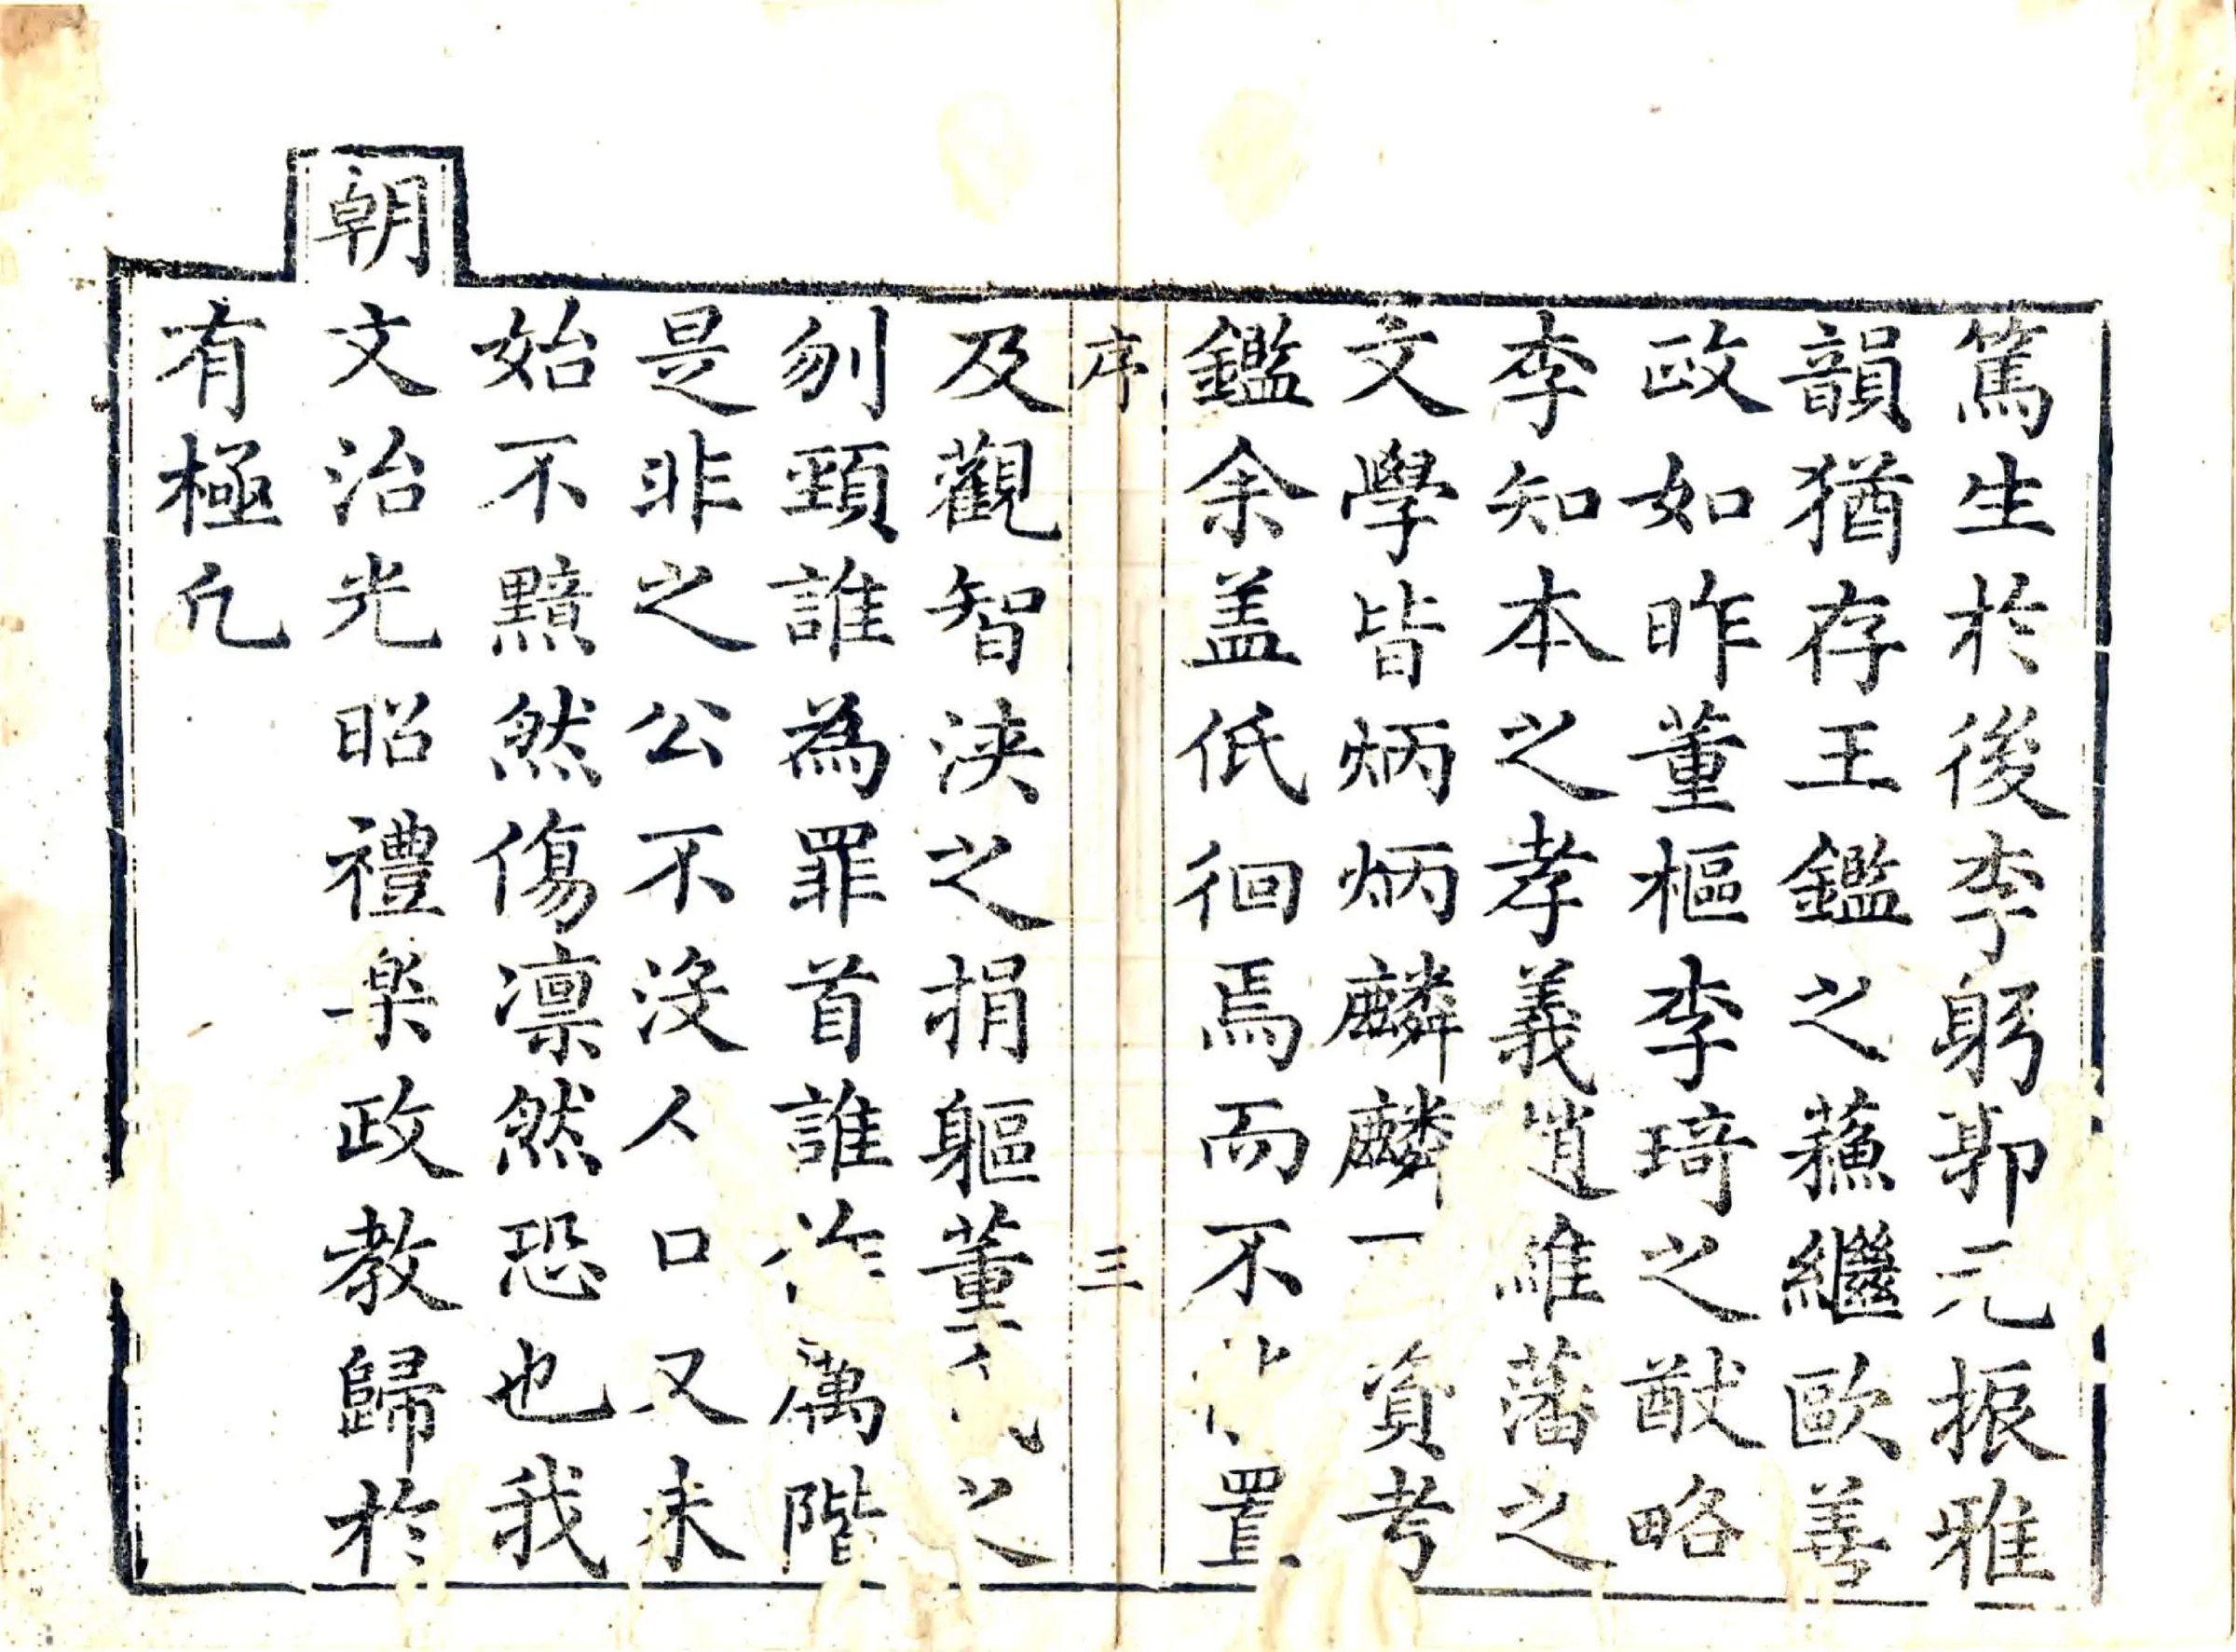 篤生於後李躬郭元振雅
韻猶存王鑑之蘓繼歐善
政如昨董樞李琦之猷略
李知本之孝義趙維藩之
文學皆炳炳麟麟一資考
鑑余盖低徊焉而不置
序 三
及觀智浹之捐軀董之
刎頸誰為罪首誰為厲階
是非之公不沒人口又未
始不黯然傷凛然恐也我
朝文治光昭禮樂政教歸於
有極凢